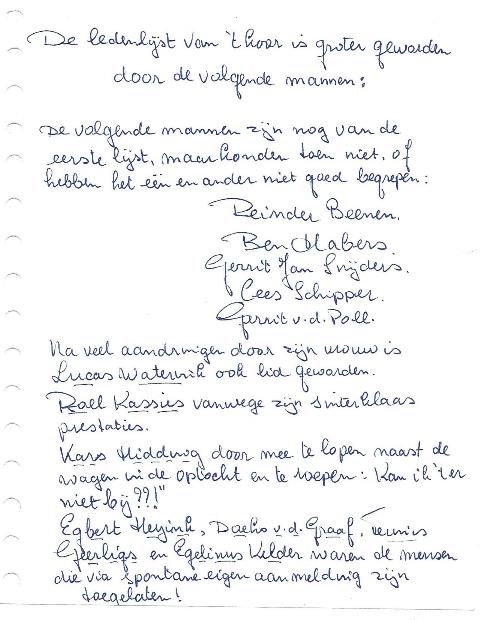 De ledenlijst van 't koor is groter geworden
door de volgende mannen:
De volgende mannen zijn nog van de
eerste lijst, maar konden toen niet, of
hebben het één en ander niet goed begrepen:
Reinder Beenen.
Ben Mabers.
Gerrit Jan Snijders.
Cees Schipper.
Gerrit v.d. Poll.
Na veel aandringen door zijn vrouw is
Lucas Waterink ook lid geworden.
Roelf Kassies vanwege zijn sinterklaas
prestaties.
Kars Hidding door mee te lopen naast de
wagen in de optocht en te roepen: Kan ik 'r er
niet bij??!"
Egbert Heyink, v.d. Graaf, Teunis
Geerligs en Egelinus Kelder waren de mensen
die via spontane eigen aanmelding zijn
toegelaten!